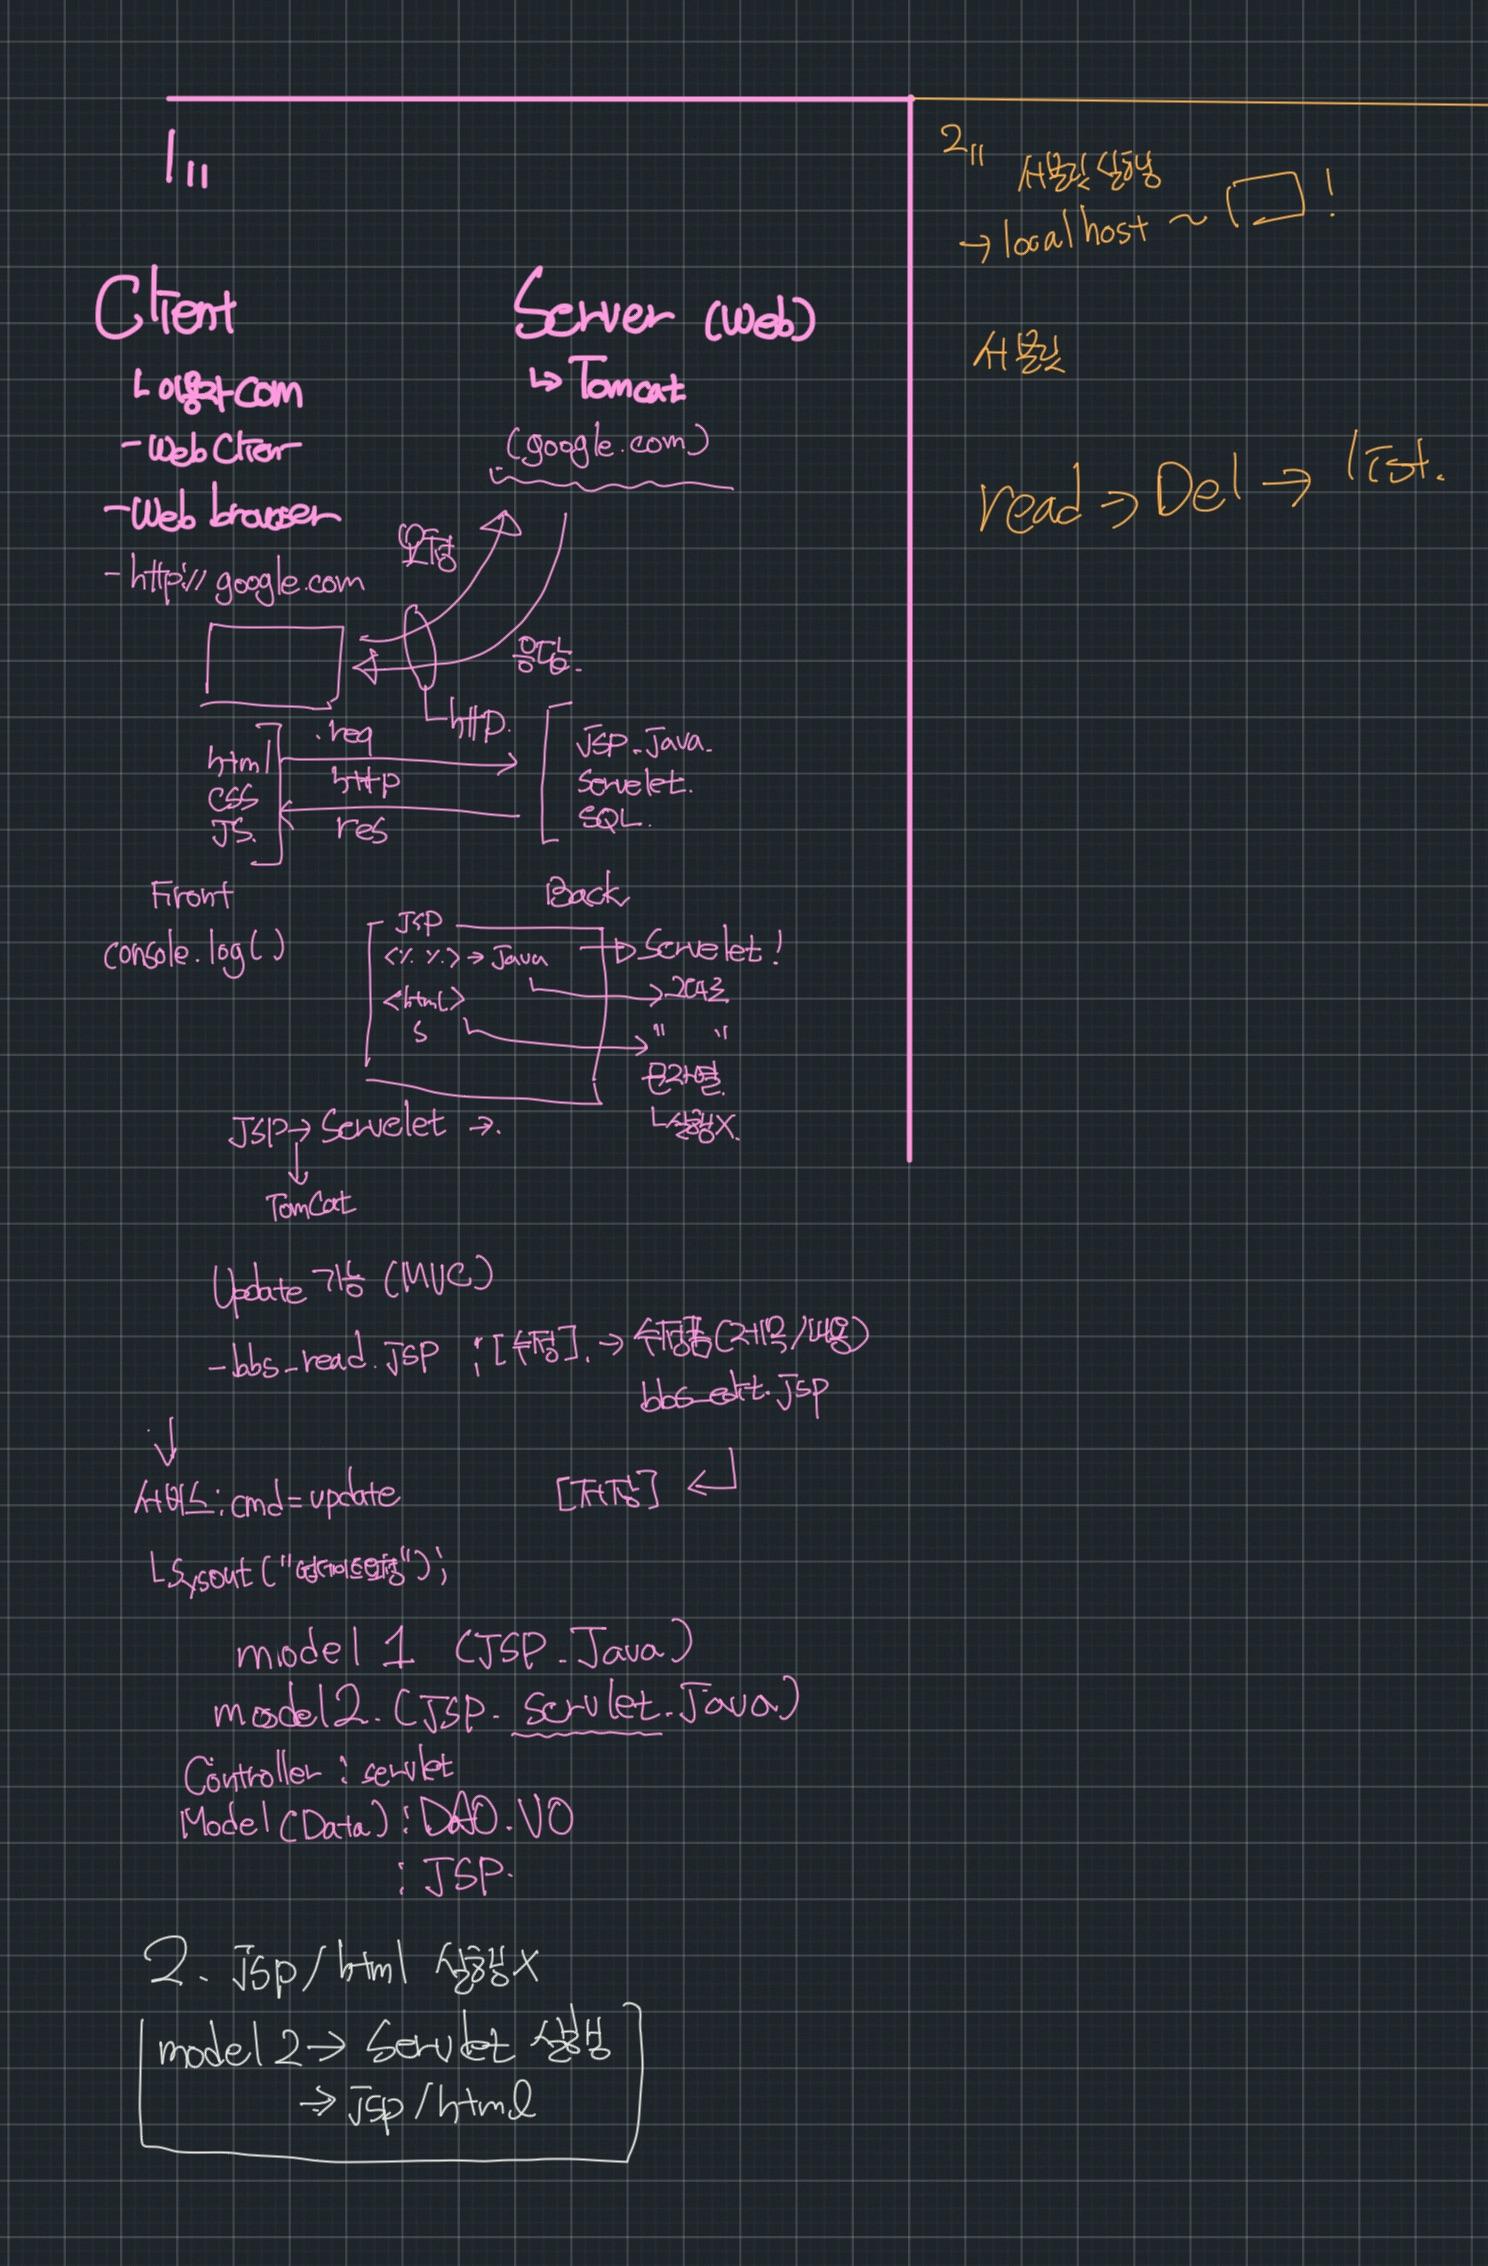 1
Client
Server (Web)
이용자 com
↳ Tomcat
- Web Client
(google.com)
- Web browser
요청
- http:// google.com
응답.
http.
html
CSS
JS.
.req
http
res
JSP. Java.
Servelet.
SQL.
Front
Back
console.log()
JSP
<% %> → Java
Servelet!
<html>
" "
문자열
실행X.
JSP → Servelet →.
TomCat
Update 기능 (MVC)
- bbs_read.JSP ; [수정]. → 수정폼(제목/내용)
bbs_edit.Jsp
↓
[저장] ↵
서비스: cmd=update
Sysout("업데이트요청");
model 1 (JSP. Java)
model2. (JSP. Servlet. Java)
Controller : servlet
Model (Data) : DAO. VO
: JSP.
2. Jsp/html 실행X
model 2 → Servlet 실행
→ Jsp/html
2
서블릿 실행
→ localhost ~ !
서블릿
read → Del → list.